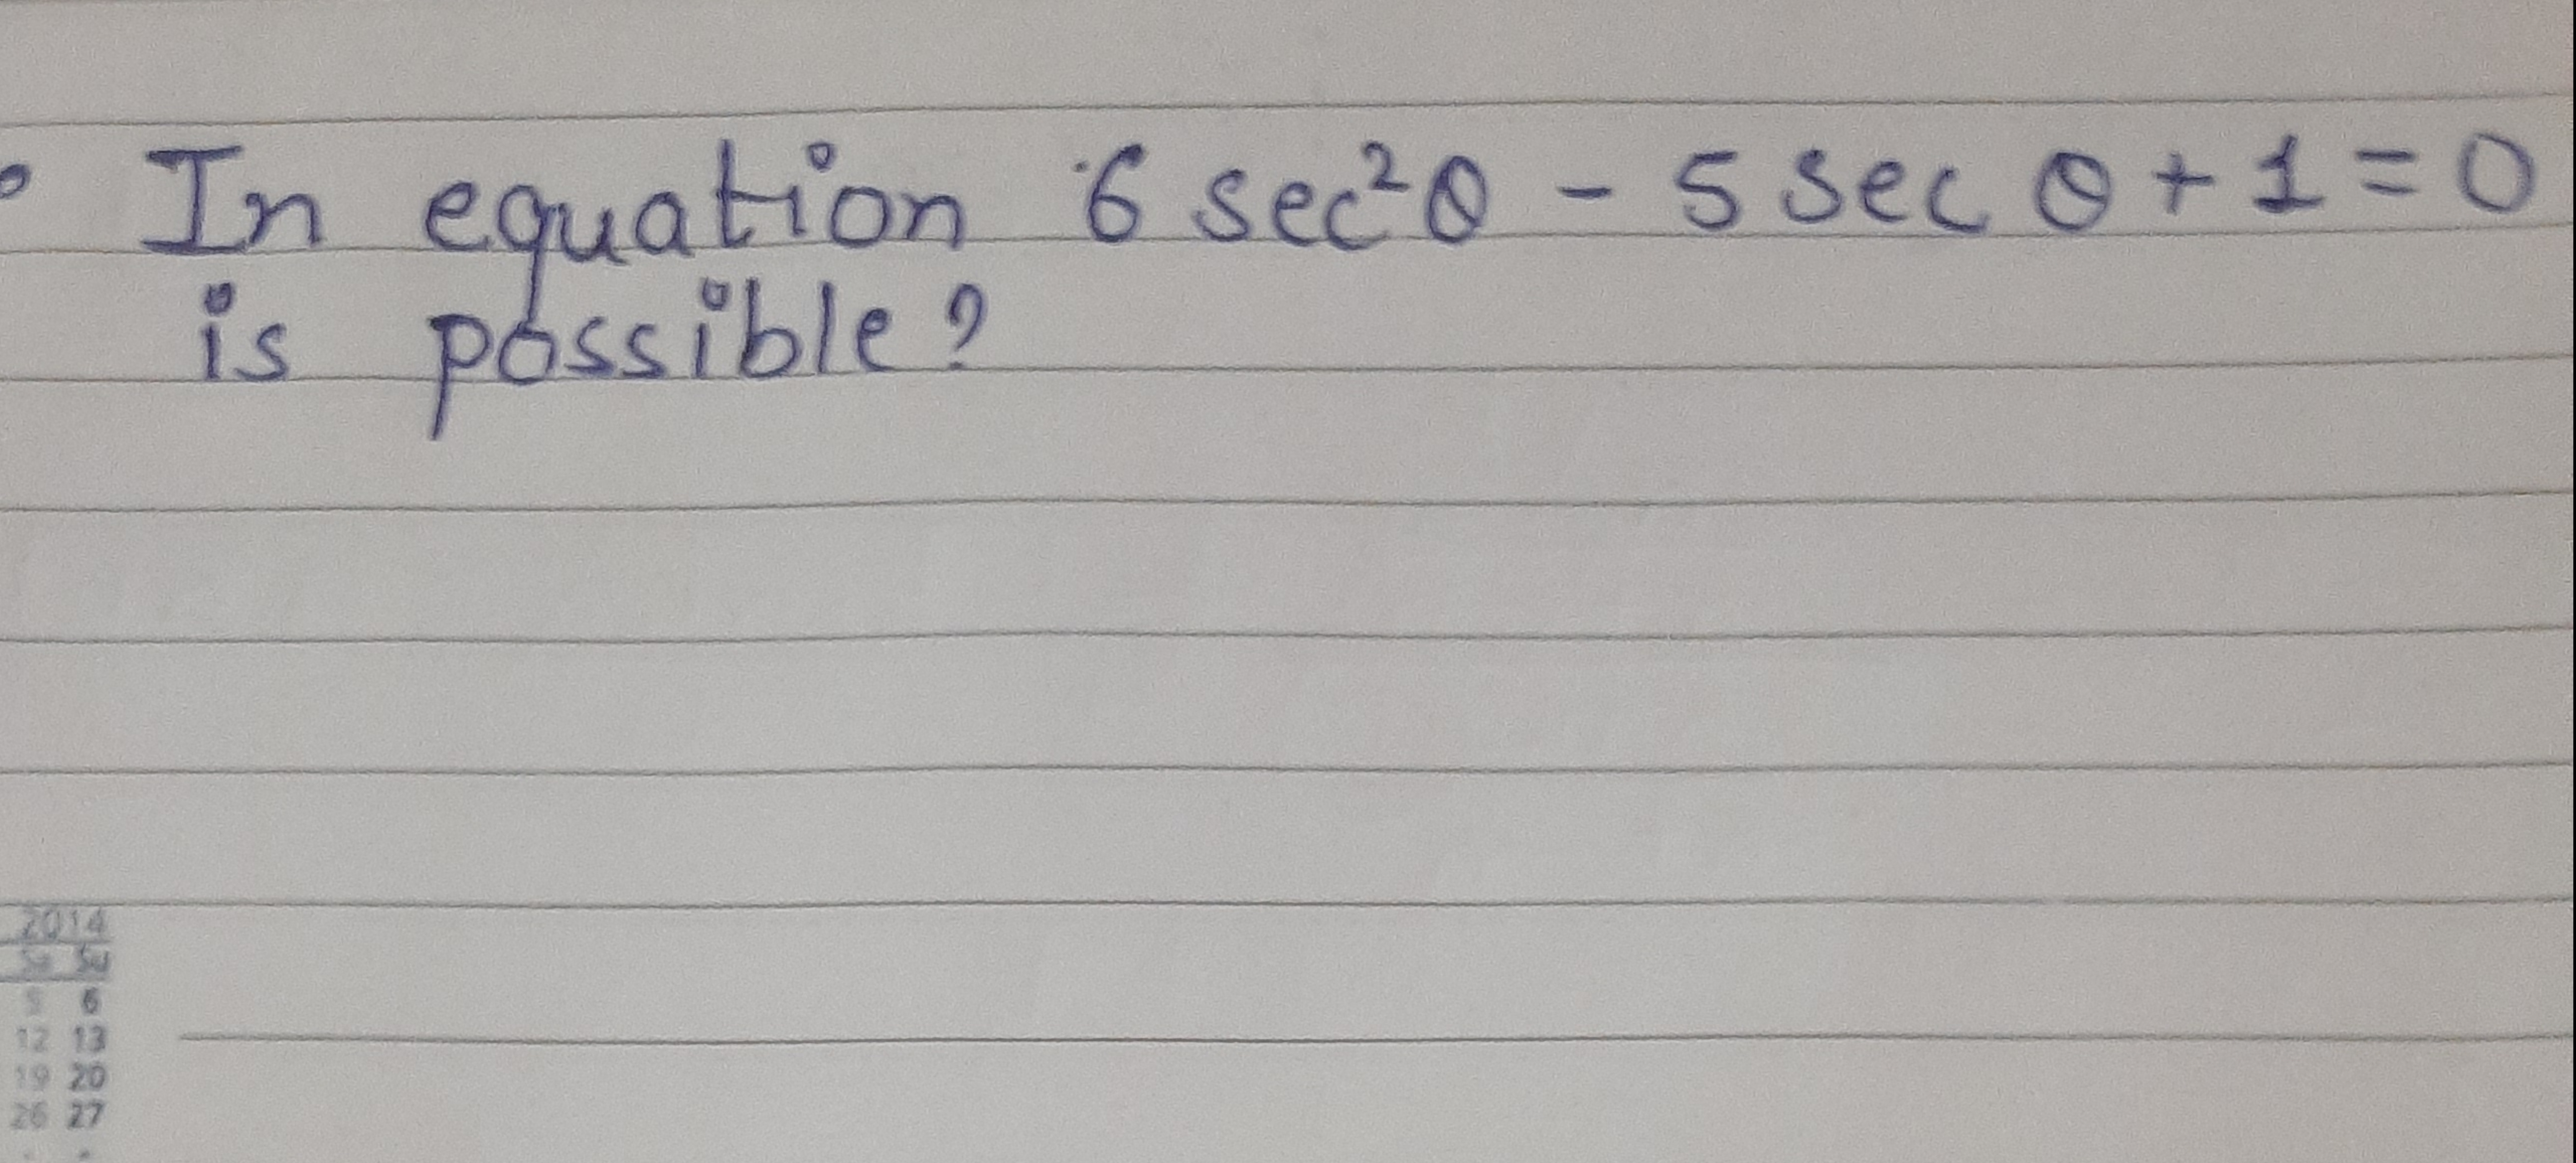 In equation 6 sec²θ - 5 sec θ + 1 = 0
is possible?
2014
Sa Su
5 6
12 13
19 20
26 27